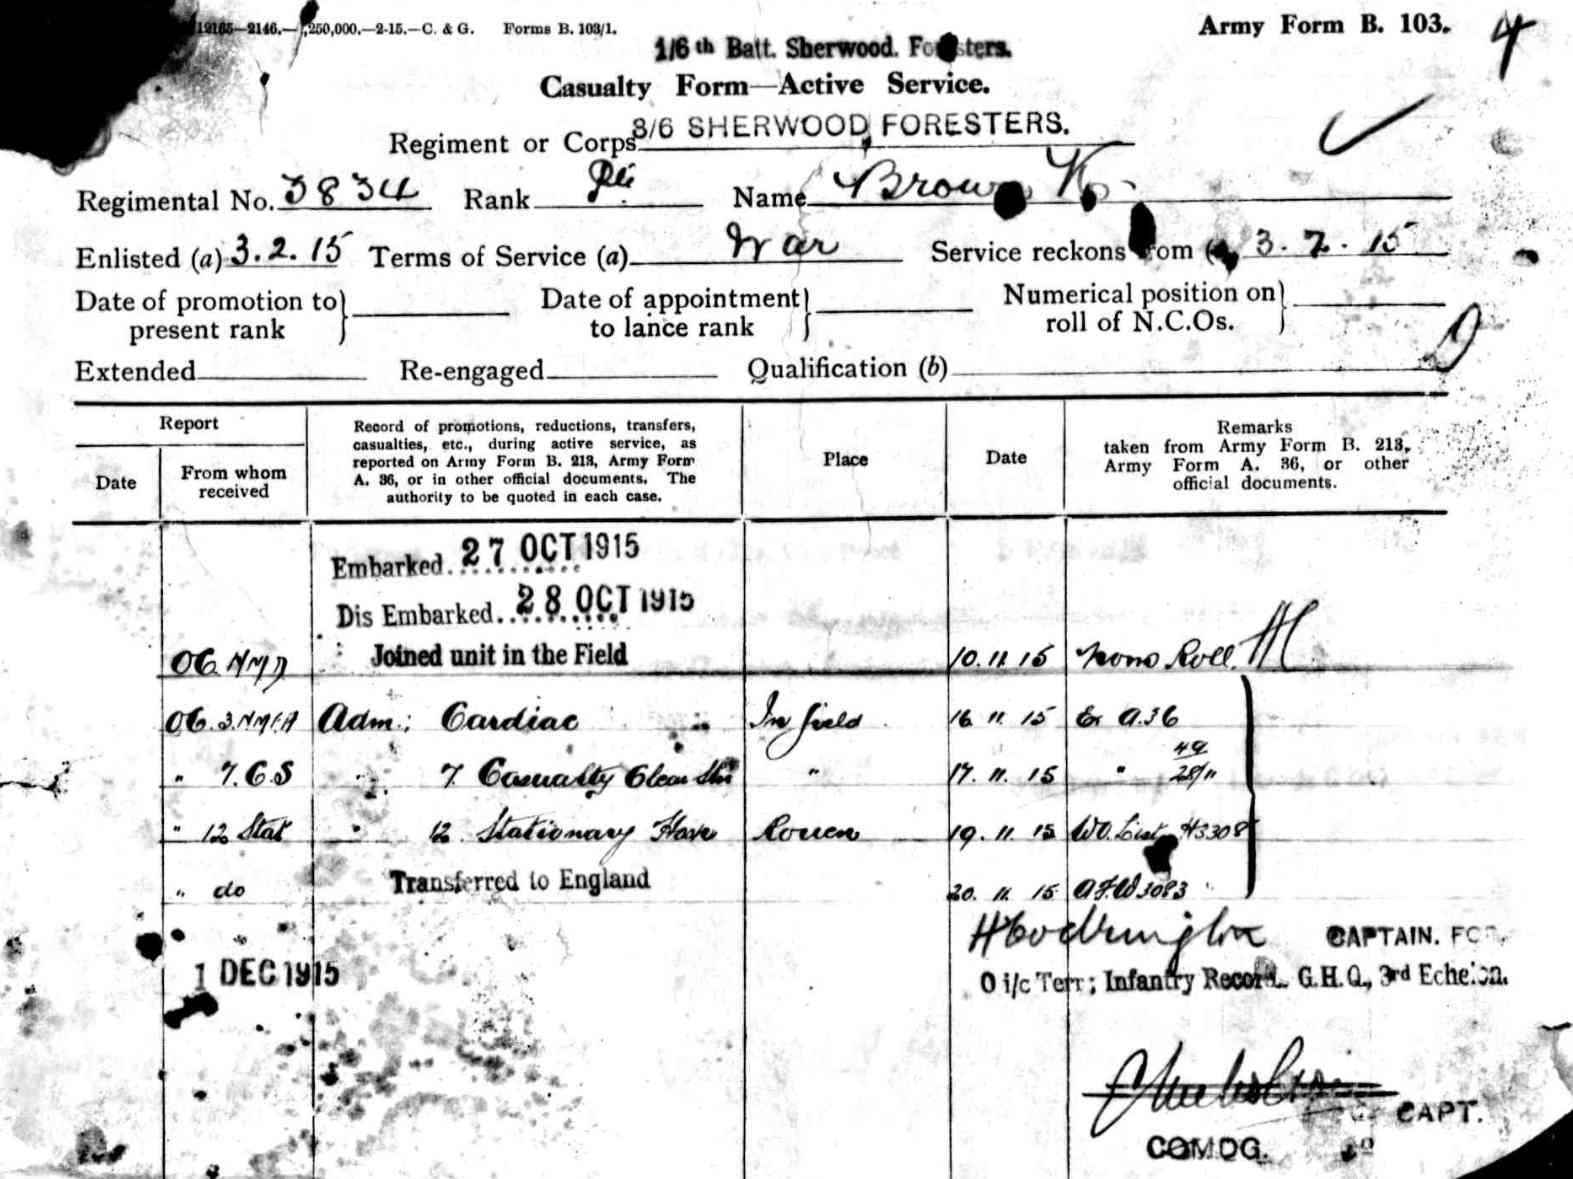 12165—2146.—1,250,000.—2-15.—C. & G. Forms B. 103/1.
Army Form B. 103.
4
1/6th Batt. Sherwood. Foresters.
Casualty Form—Active Service.
Regiment or Corps 3/6 SHERWOOD FORESTERS.
Regimental No. 3834 Rank Pte Name Brown W.
Enlisted (a) 3.2.15 Terms of Service (a) War Service reckons from ( 3.2.15
Date of promotion to present rank } Date of appointment to lance rank } Numerical position on roll of N.C.Os. }
Extended Re-engaged Qualification (b)
Report
Date
From whom received
Record of promotions, reductions, transfers, casualties, etc., during active service, as reported on Army Form B. 213, Army Form A. 36, or in other official documents. The authority to be quoted in each case.
Place
Date
Remarks taken from Army Form B. 213, Army Form A. 36, or other official documents.
Embarked. 27 OCT 1915
Dis Embarked. 28 OCT 1915
OC. NMD Joined unit in the Field 10.11.15 Nom Roll
OC. 3.NMFA Adm: Cardiac In field 16 11 15 Ex A.36
" 7.C.S " 7 Casualty Clear Stn " 17.11.15 " 49 28/11
" 12 Stat " 12 Stationary Rouen 19.11.15 WO. List H3308
" do Transferred to England 20.11.15 AFW3083
CAPTAIN. FOR.
1 DEC 1915
O i/c Terr; Infantry Record. G.H.Q., 3rd Echelon.
CAPT.
COMDG.